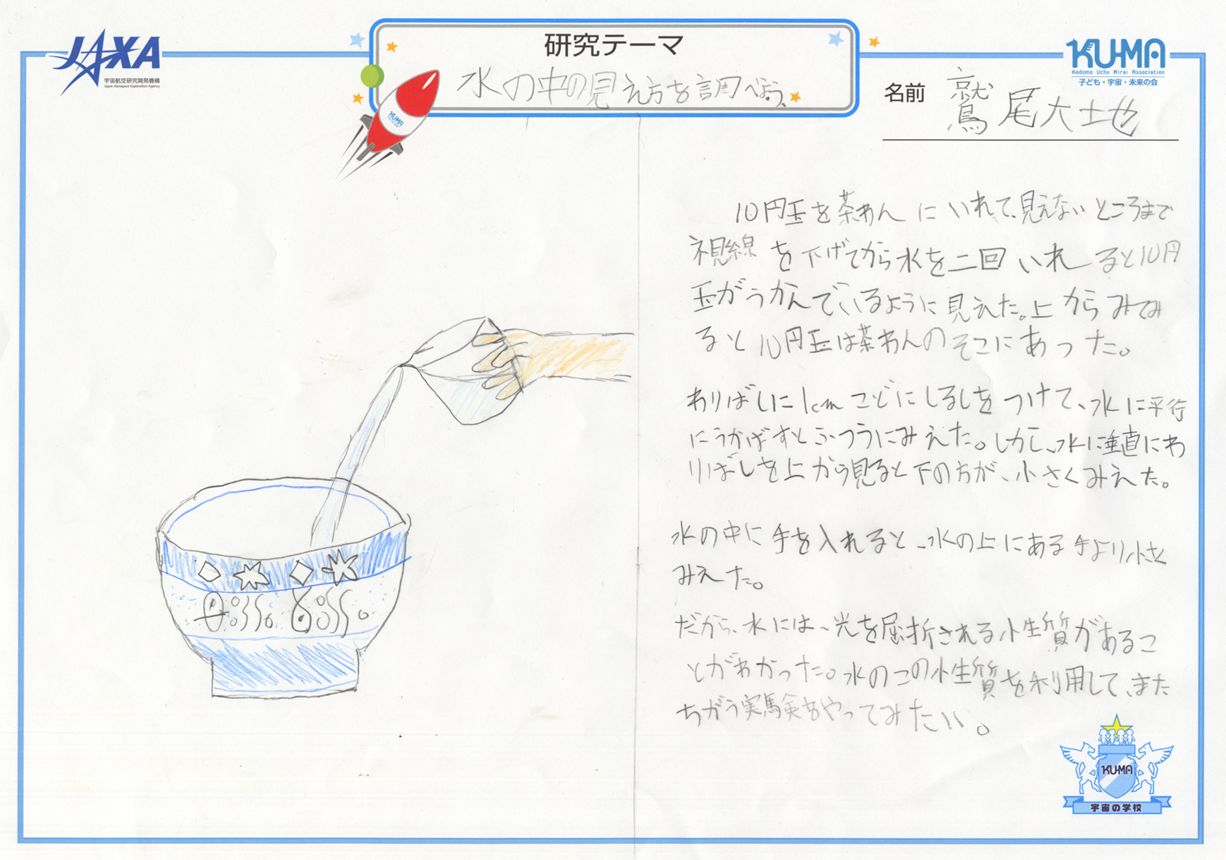 JAXA
宇宙航空研究開発機構
Japan Aerospace Exploration Agency
研究テーマ
水の中の見え方を調べよう。
KUMA
KU-MA
Kodomo Uchu Mirai Association
子ども・宇宙・未来の会
名前
鷲尾大地
10円玉を茶わんにいれて、見えないところまで
視線を下げてから水を二回いれると10円
玉がうかんでいるように見えた。上からみてみ
ると10円玉は茶わんのそこにあった。
わりばしに1cmごとにしるしをつけて、水に平行
にうかばすとふつうにみえた。しかし、水に垂直にわ
りばしを上から見ると下の方が、小さくみえた。
水の中に手を入れると、水の上にある手より小さく
みえた。
だから、水には、光を屈折される性質があるこ
とがわかった。水のこの性質を利用して、また
ちがう実験をやってみたい。
KU-MA
宇宙の学校